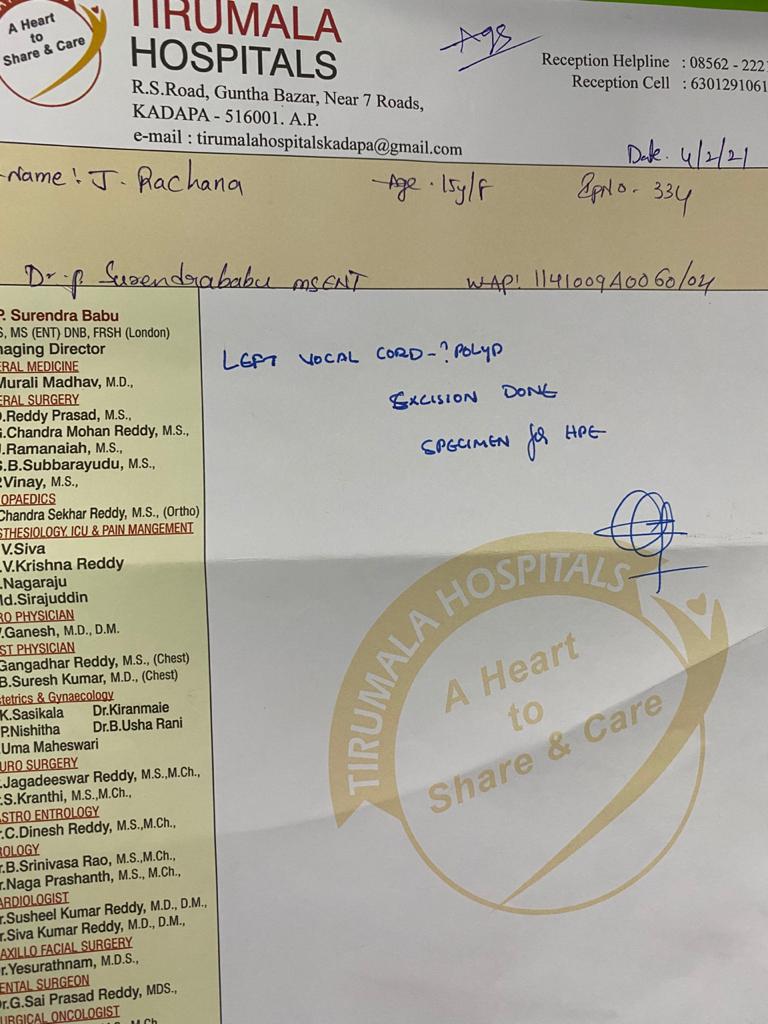 A Heart
to
Share & Care
TIRUMALA
HOSPITALS
R.S.Road, Guntha Bazar, Near 7 Roads,
KADAPA - 516001. A.P.
e-mail : tirumalahospitalskadapa@gmail.com
Ags
Reception Helpline : 08562 - 222
Reception Cell : 6301291061
Date. 4/2/21
Name: J. Rachana Age. 15y/F IpNo - 334
Dr. P Surendrababu MSENT WAP! 1141009A0060/04
P. Surendra Babu
S, MS (ENT) DNB, FRSH (London)
naging Director
ERAL MEDICINE
Murali Madhav, M.D.,
ERAL SURGERY
.Reddy Prasad, M.S.,
.Chandra Mohan Reddy, M.S.,
.Ramanaiah, M.S.,
.B.Subbarayudu, M.S.,
Vinay, M.S.,
OPAEDICS
Chandra Sekhar Reddy, M.S., (Ortho)
STHESIOLOGY, ICU & PAIN MANGEMENT
V.Siva
.V.Krishna Reddy
Nagaraju
Md.Sirajuddin
RO PHYSICIAN
.Ganesh, M.D., D.M.
ST PHYSICIAN
Gangadhar Reddy, M.S., (Chest)
B.Suresh Kumar, M.D., (Chest)
stetrics & Gynaecology
K.Sasikala Dr.Kiranmaie
P.Nishitha Dr.B.Usha Rani
Uma Maheswari
URO SURGERY
.Jagadeeswar Reddy, M.S.,M.Ch.,
r.S.Kranthi, M.S.,M.Ch.,
ASTRO ENTROLOGY
r.C.Dinesh Reddy, M.S.,M.Ch.,
ROLOGY
r.B.Srinivasa Rao, M.S.,M.Ch.,
r.Naga Prashanth, M.S., M.Ch.,
ARDIOLOGIST
r.Susheel Kumar Reddy, M.D., D.M.,
r.Siva Kumar Reddy, M.D., D.M.,
AXILLO FACIAL SURGERY
r.Yesurathnam, M.D.S.,
ENTAL SURGEON
Dr.G.Sai Prasad Reddy, MDS.,
URGICAL ONCOLOGIST
M.Ch
LEFT VOCAL CORD - ? POLYP
EXCISION DONE
SPECIMEN for HPE
TIRUMALA HOSPITALS
A Heart
to
Share & Care